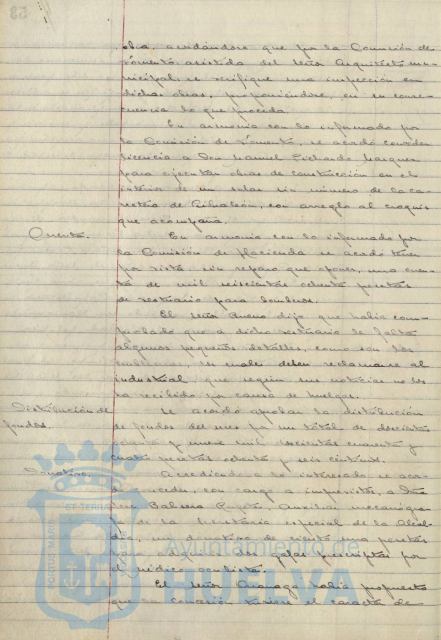 obra, acordándose que por la Comisión de
Fomento asistida del Señor Arquitecto mu-
nicipal, se verifique una inspección en
dichas obras, proponiéndose, en su conse-
cuencia lo que proceda.
En armonía con lo informado por
la Comisión de Fomento, se acordó conceder
licencia a Don Manuel Pichardo Márquez
para ejecutar obras de construcción en el
interior de un solar sin número de la ca-
rretera de Gibraleón, con arreglo al croquis
que acompaña.
Cuenta.
En armonía con lo informado por
la Comisión de Hacienda se acordó
por vista sin reparo que oponer, una cuen-
ta de mil seiscientas ochenta pesetas
de vestuario para bomberos.
El Señor dijo que había com-
probado que a dicho vestuario le falta
algunos pequeños detalles, como son los
emblemas, los cuales deben reclamarse al
industrial, que según sus noticias no los
ha recibido por causa de huelgas.
Distribución de
fondos.
Se acordó aprobar la distribución
de fondos del mes por un total de doscientas
y nueve mil doscientas cuarenta y
cuatro pesetas ochenta y seis céntimos.
Donativo.
Accediendo a lo interesado se acor-
dó conceder, con cargo a imprevistos, a
Balsera Auxiliar mecanógra-
fa de la Secretaría especial de la Alcal-
día, un donativo de pesetas
para gafas por
el médico oculista.
El Señor había propuesto
que la concesión tuviese el carácter de
PORTUS MARIS ET TERRAE
Ayuntamiento de
HUELVA